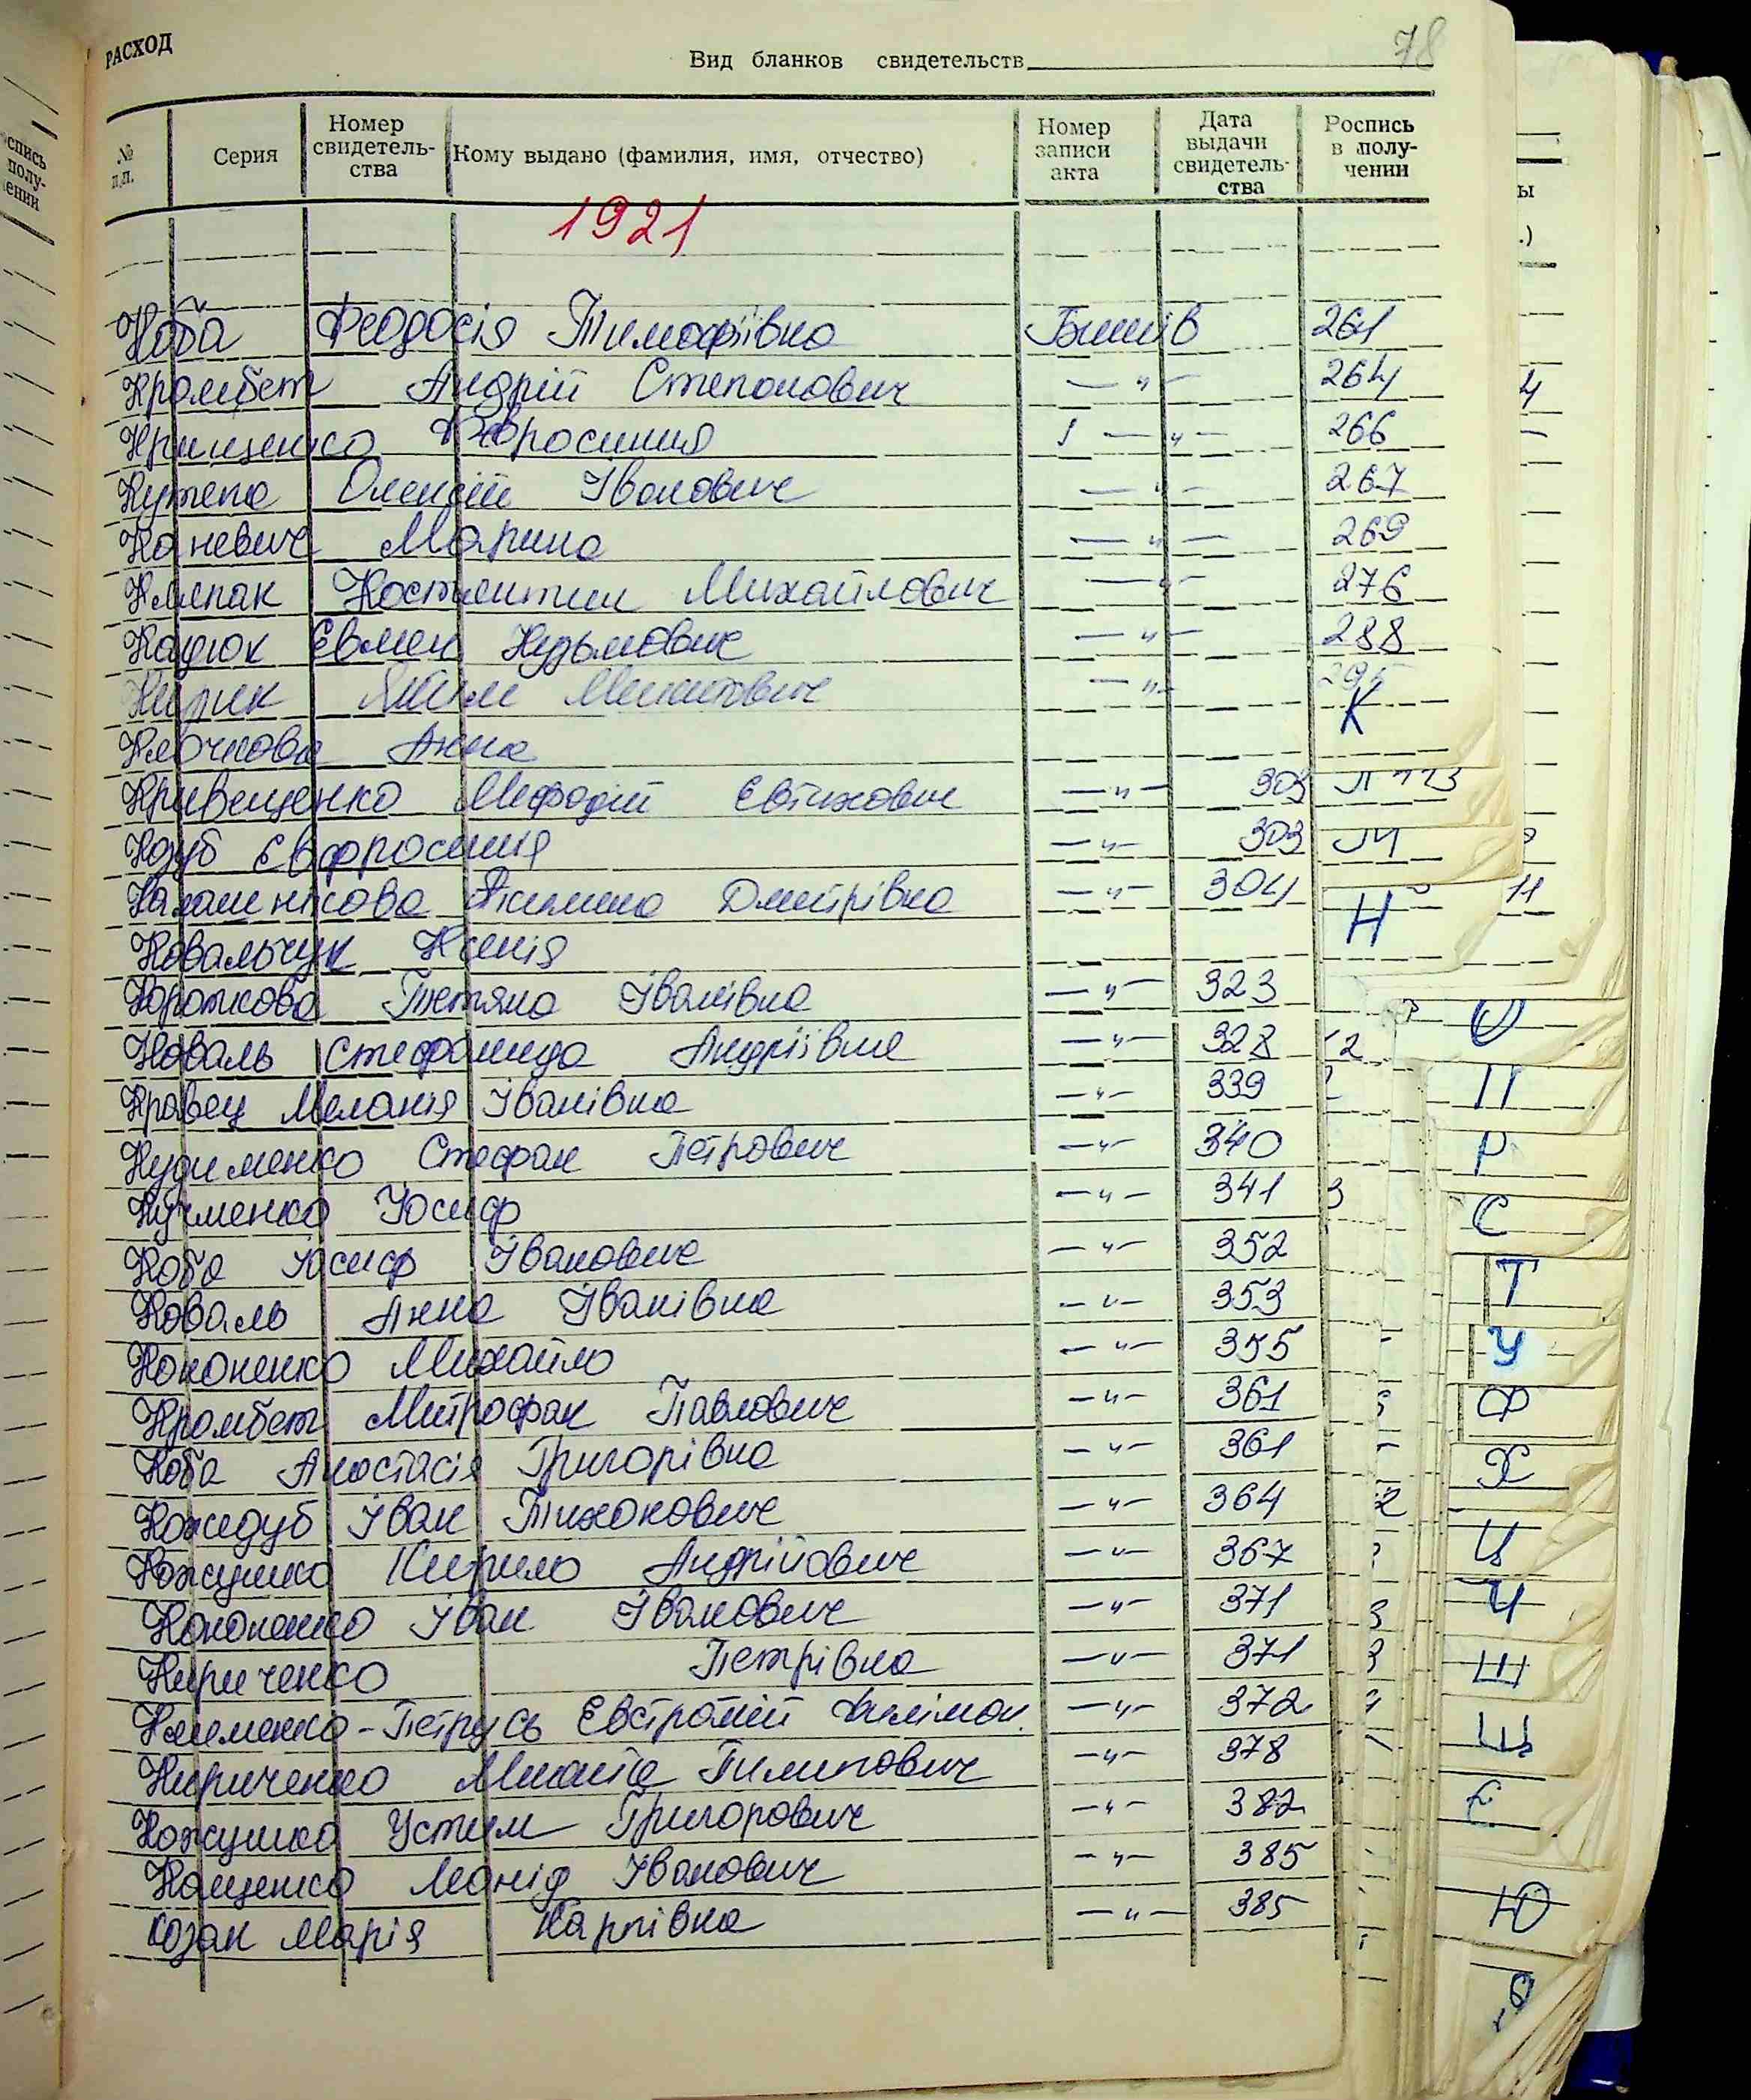 РАСХОД
Вид бланков свидетельств
78
№ п.п.
Серия
Номер свидетель-ства
Кому выдано (фамилия, имя, отчество)
Номер записи акта
Дата выдачи свидетель-ства
Роспись в полу-чении
1921
Коба Феодосія Тимофіївна Бишів 261
Кромбет Андрій Степанович —"— 264
Крищенко —"— 266
Кутепа Олексій Іванович —"— 267
Каневич Марина —"— 269
Клепак Костянтин Михайлович —"— 276
Кадюк Евмен Кузьмович —"— 288
Кирик —"— 295
К
Клочкова Анна
Кривещенко Мефодій Евтихович —"— 303
Кдуб Евфросинія —"— 303
Калашнікова Дмитрівна —"— 304
Н
Ковальчук Ксенія
Короткова Тетяна Іванівна —"— 323
Коваль Стефанида Андріївна —"— 328
Кравец Меланія Іванівна —"— 339
Кудименко Стефан Петрович —"— 340
Кучменко Йосиф —"— 341
Коба Йосиф Іванович —"— 352
Коваль Анна Іванівна —"— 353
Кононенко Михайло —"— 355
Кромбет Митрофан Павлович —"— 361
Коба Анастасія Григорівна —"— 361
Кожедуб Іван Тихонович —"— 364
Кожушко Кирило Андрійович —"— 367
Кононенко Іван Іванович —"— 371
Кириченко Петрівна —"— 371
Клименко-Петрусь Евстратій Филімон. —"— 372
Кириченко Микита Пилипович —"— 378
Кожушко Устим Григорович —"— 382
Кащенко Леонід Іванович —"— 385
Козак Марія Карпівна —"— 385
О
П
Р
С
Т
У
Ф
Х
Ц
Ч
Ш
Щ
Є
Ю